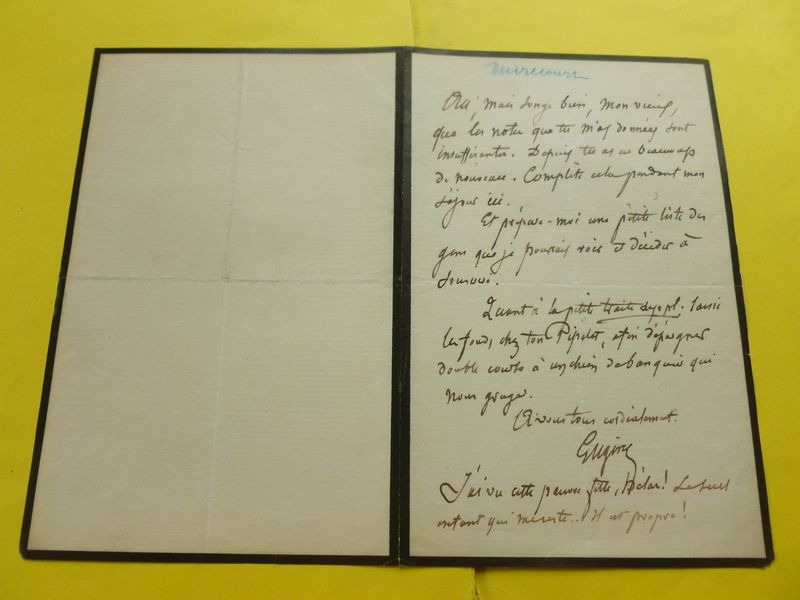 Mirecourt
Oui, mais songe bien, mon vieux,
que les notes que tu m'as données sont
insuffisantes. Depuis tu as eu beaucoup
de nouveau. Complète cela pendant mon
séjour ici.
Et prépare-moi une petite liste des
gens que je pourrais voir et décider à
souscrire.
Quant à la petite traite laisse
les fonds, chez ton Pipelet, afin d'épargner
double course à un chien de banquier qui
nous gruge.
A vous tous cordialement.
Eugène
J'ai vu cette pauvre fille, hélas! Le seul
enfant qui me reste... Il est propre!